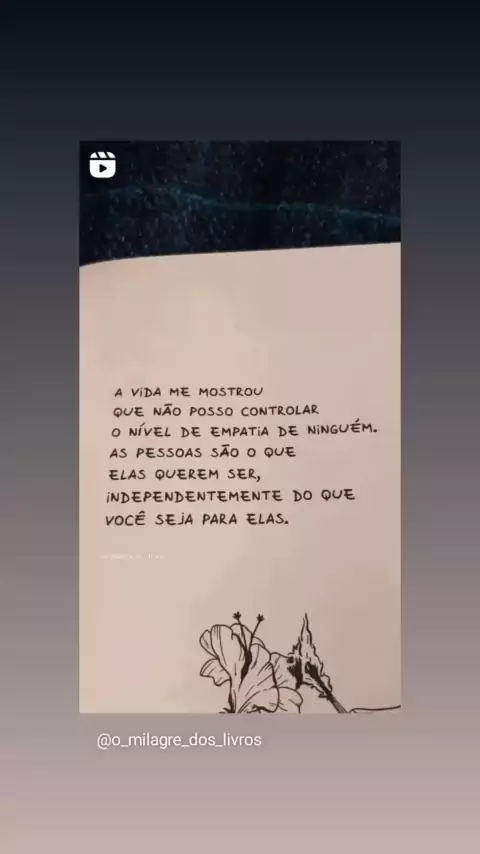 A VIDA ME MOSTROU
QUE NÃO POSSO CONTROLAR
O NÍVEL DE EMPATIA DE NINGUÉM.
AS PESSOAS SÃO O QUE
ELAS QUEREM SER,
INDEPENDENTEMENTE DO QUE
VOCÊ SEJA PARA ELAS.
@o_milagre_dos_livros